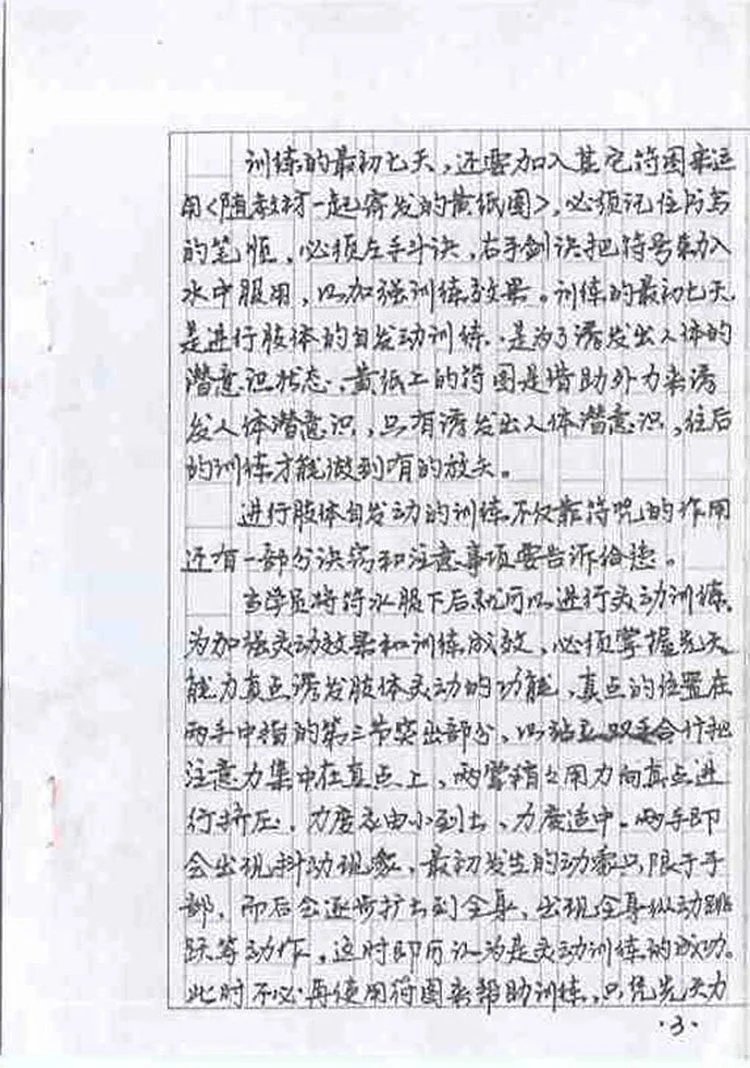 训练的最初七天，还需加入其它符图来运
用<随教材一起寄发的黄纸图>，必须记住所写
的笔顺，必须左手斗诀，右手剑诀把符号来加入
水中服用，以加强训练效果。训练的最初七天，
是进行肢体的自发动训练，是为了诱发出人体的
潜意识状态，黄纸上的符图是借助外力来诱
发人体潜意识，只有诱发出人体潜意识，往后
的训练才能做到有的放矢。
进行肢体自发动的训练不仅靠符咒的作用
还有一部分诀窍和注意事项要告诉给您。
当学员将符水服下后就可以进行灵动训练，
为加强灵动效果和训练成效，必须掌握先天
能力真点诱发肢体灵动的功能，真点的位置在
两手中指的第三节突出部分，以站立双手合什把
注意力集中在真点上，两掌稍稍用力向真点进
行挤压，力度应由小到大，力度适中。两手即
会出现抖动现象，最初发生的动象只限于手
部，而后会逐步扩大到全身，出现全身纵动跳
跃等动作，这时即可认为是灵动训练的成功。
此时不必再使用符图来帮助训练，只凭先天力
·3·